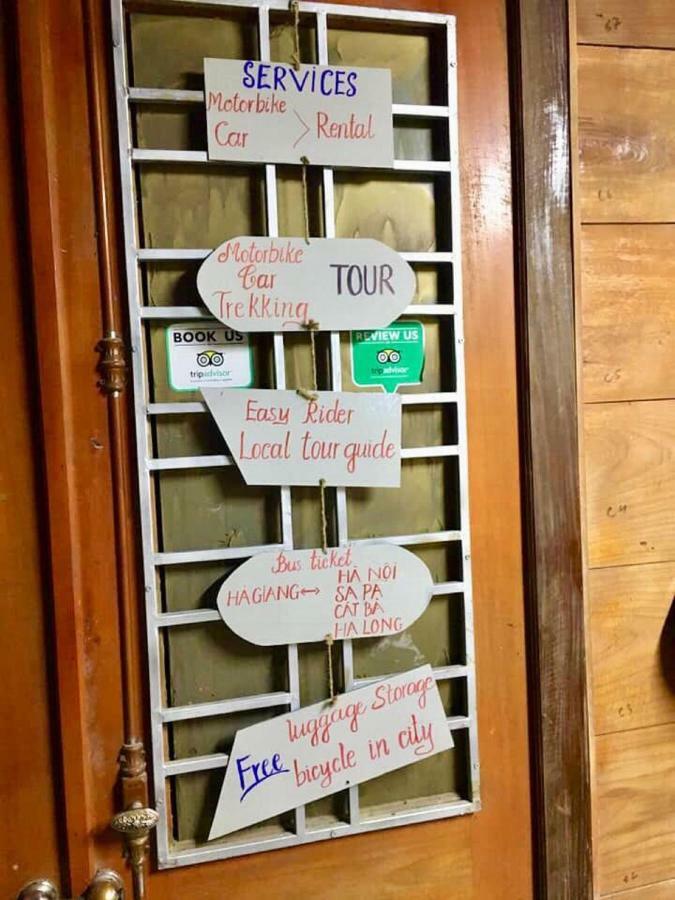 SERVICES
Motorbike
Car > Rental
Motorbike
Car TOUR
Trekking
BOOK US
tripadvisor
REVIEW US
tripadvisor
Easy Rider
Local tour guide
Bus ticket
HÀ GIANG ↔ HÀ NỘI
SA PA
CÁT BÀ
HẠ LONG
Free luggage Storage
bicycle in city